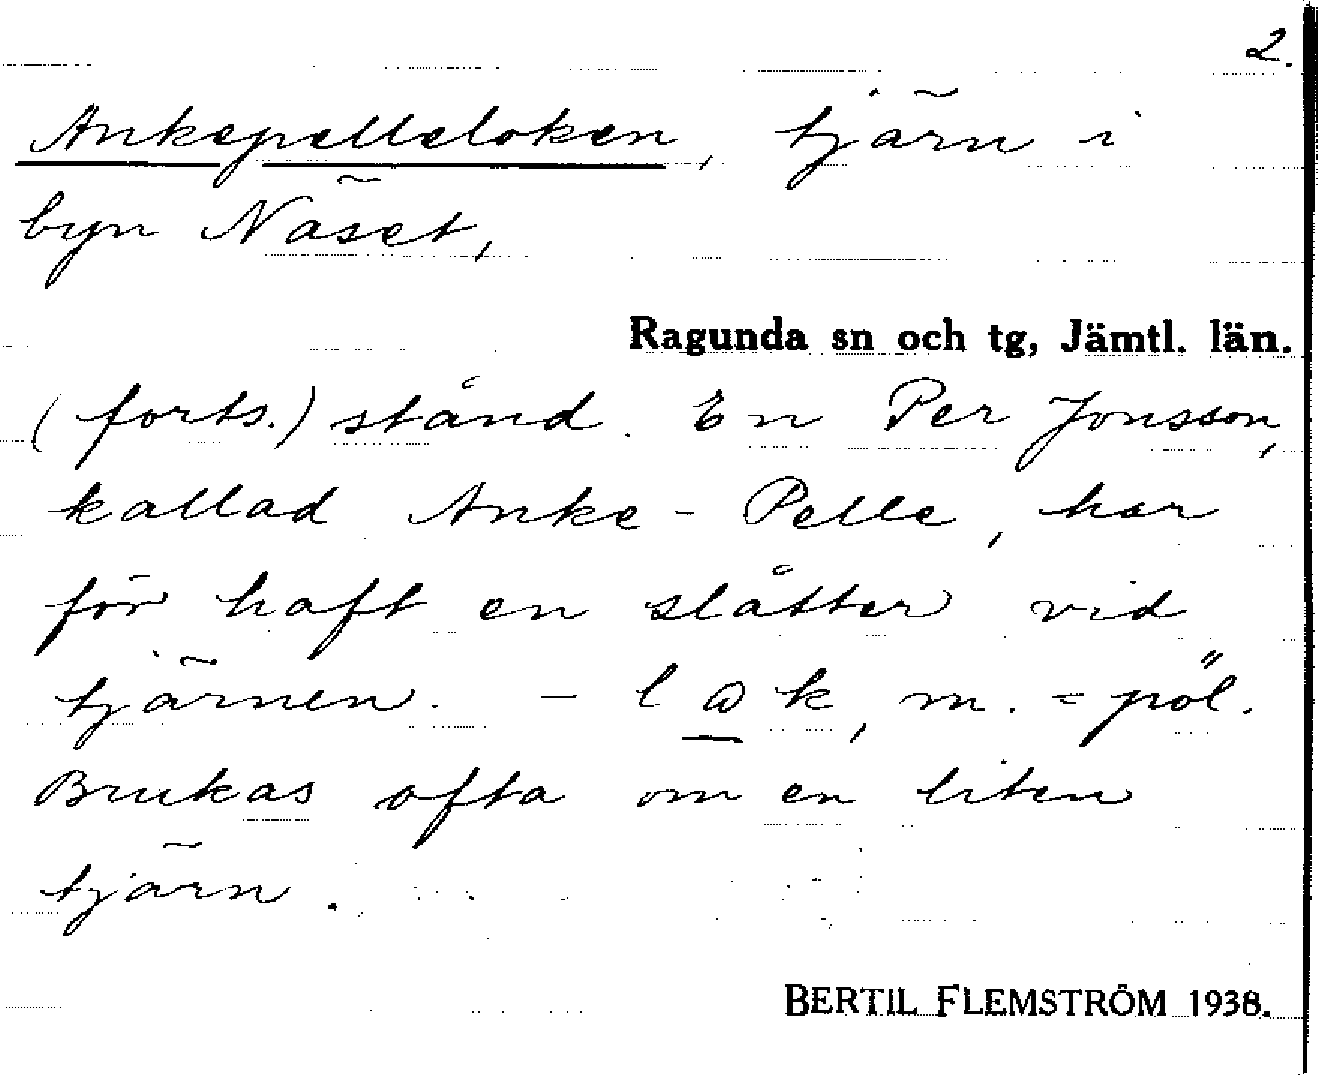 2.
Ankepelleloken, tjärn i
byn Näset,
Ragunda sn och tg, Jämtl. län.
(forts.) stånd. En Per Jonsson,
kallad Anke-Pelle, har
för haft en slåtter vid
tjärnen. - l k, m. = pöl.
Brukas ofta om en liten
tjärn.
BERTIL FLEMSTRÖM 1938.